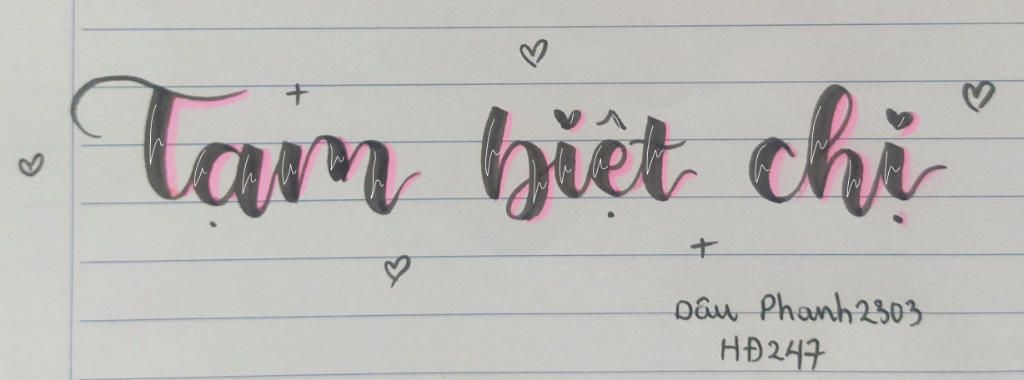 Tạm biệt chị
Dâu Phanh2303
HĐ247